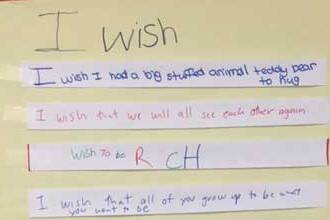 I wish
I wish I had a big stuffed animal teddy bear
to hug
I wish that we will all see each other again
Wish To be R CH
I wish that all of you grow up to be what
you want to be